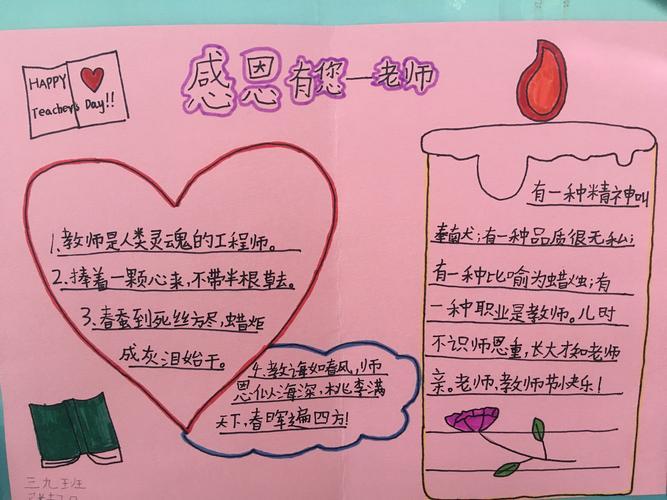 HAPPY
Teacher's Day!!
感恩有您一老师
1.教师是人类灵魂的工程师。
2.捧着一颗心来,不带半根草去。
3.春蚕到死丝方尽,蜡炬
成灰泪始干。
4.教诲如春风,师
恩似海深,桃李满
天下,春晖遍四方!
有一种精神叫
奉献;有一种品质很无私;
有一种比喻为蜡烛;有
一种职业是教师。儿时
不识师恩重,长大才知老师
亲。老师,教师节快乐!
三九班